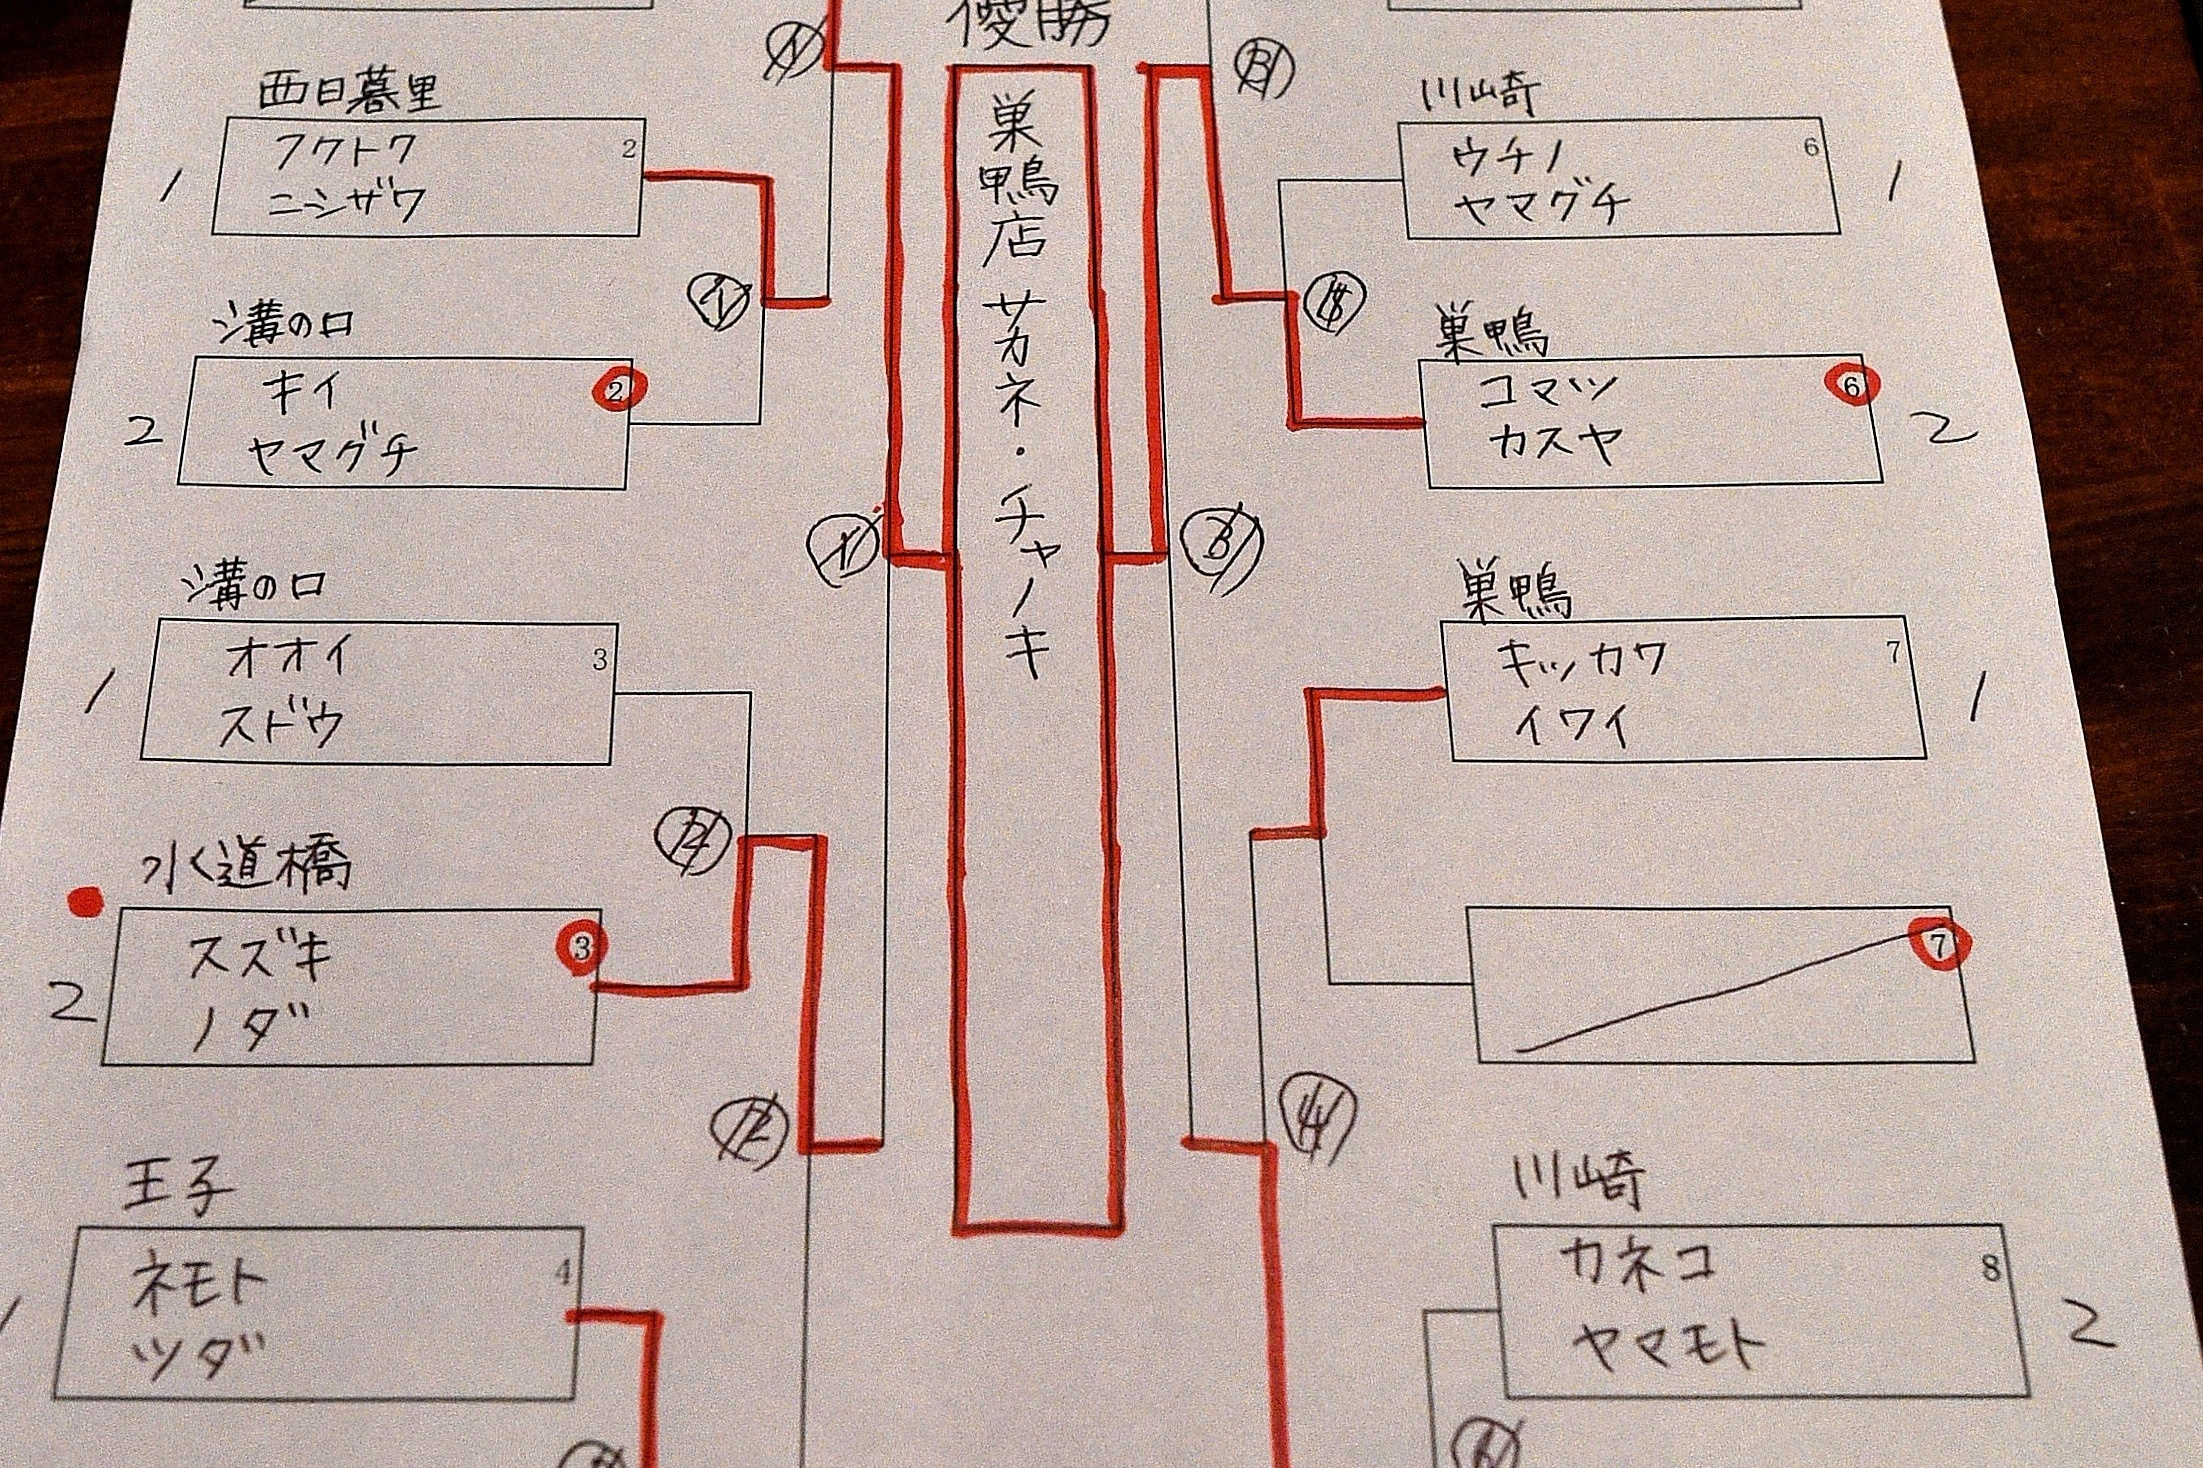 優勝
巣鴨店 サカネ・チャノキ
西日暮里
フクトク
ニシザワ
2
1
溝の口
キイ
ヤマグチ
2
2
溝の口
オオイ
スドウ
3
1
水道橋
スズキ
ノダ
3
2
王子
ネモト
ツダ
4
川崎
ウチノ
ヤマグチ
6
1
巣鴨
コマツ
カスヤ
6
2
巣鴨
キッカワ
イワイ
7
1
7
川崎
カネコ
ヤマモト
8
2